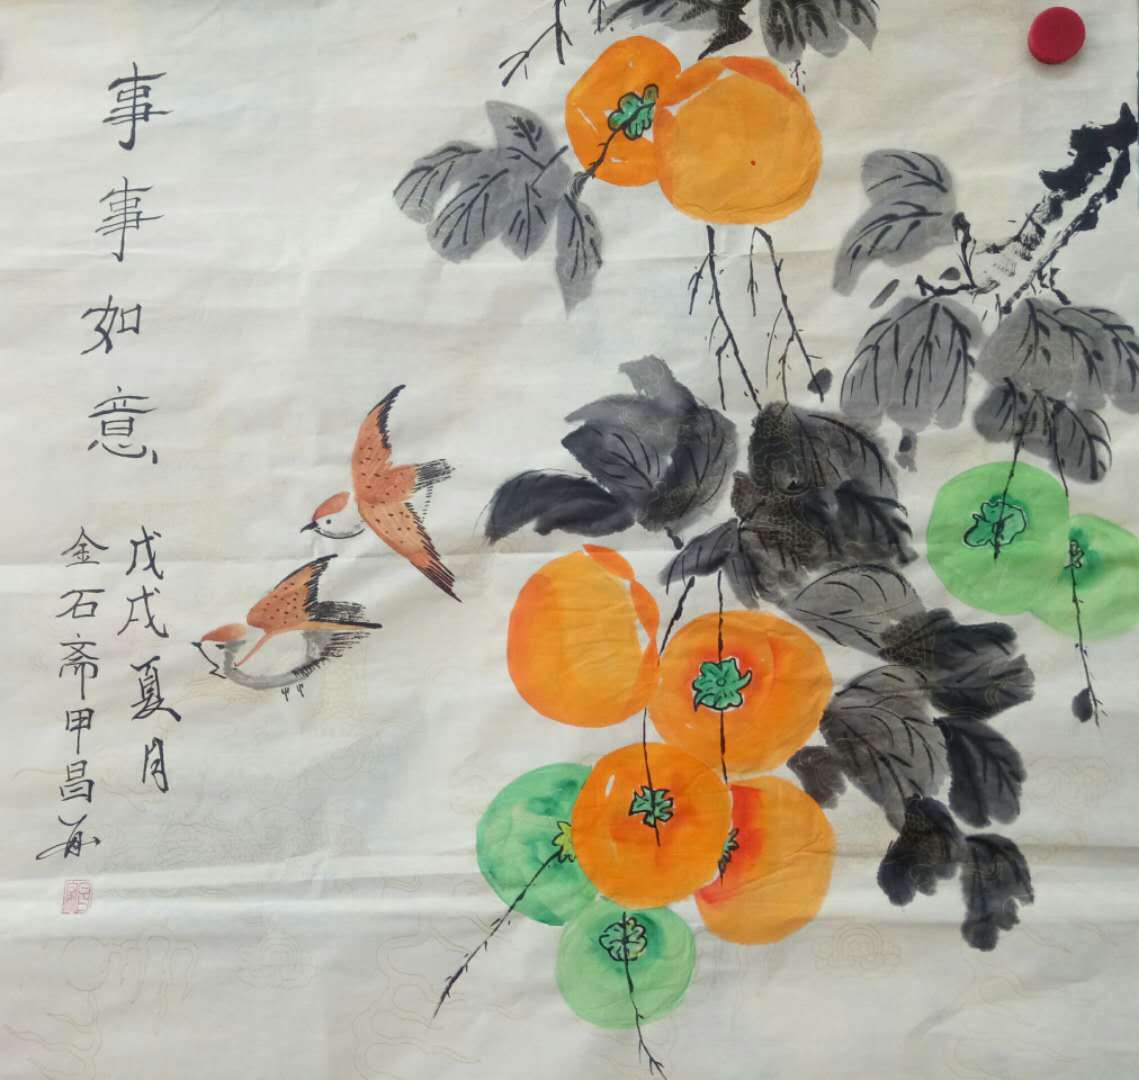 事事如意
戊戌夏月
金石斋甲昌